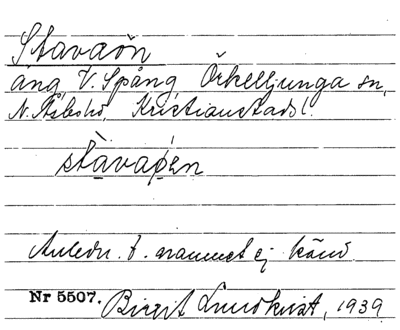 Stavaön
ang. V. Spång, Örkelljunga sn,
N. Åsbo hd, Kristianstads l.
stàvaǿ́n
Anledn. t. namnet ej känd.
Nr 5507. Birgit Lundkvist, 1939